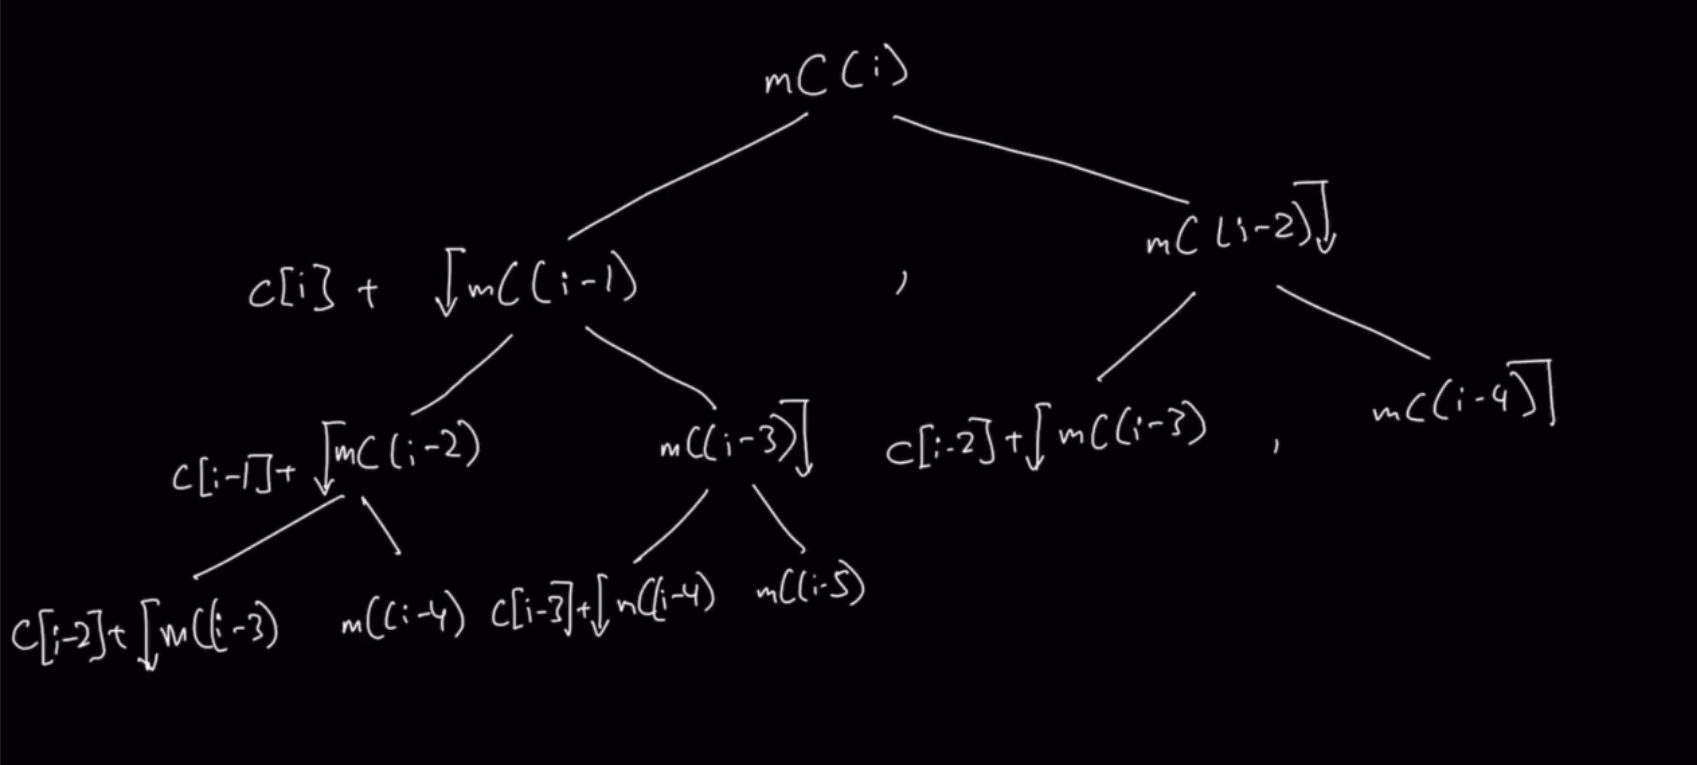 mC(i)
mC(i-2)
c[i] + mC(i-1) ,
mC(i-4)
c[i-1]+ mC(i-2) mC(i-3) c[i-2]+ mC(i-3) ,
c[i-2]+ mC(i-3) mC(i-4) c[i-3]+ mC(i-4) mC(i-5)